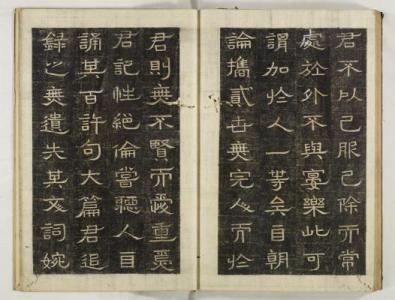 君不以己服己除而常
處於外不與宴樂此可
謂加於人一等矣自朝
論攜貳世無完人而於
君則無不賢而愛重焉
君記性絕倫嘗聽人自
誦其百許句大篇君追
錄之無遺失其文詞婉